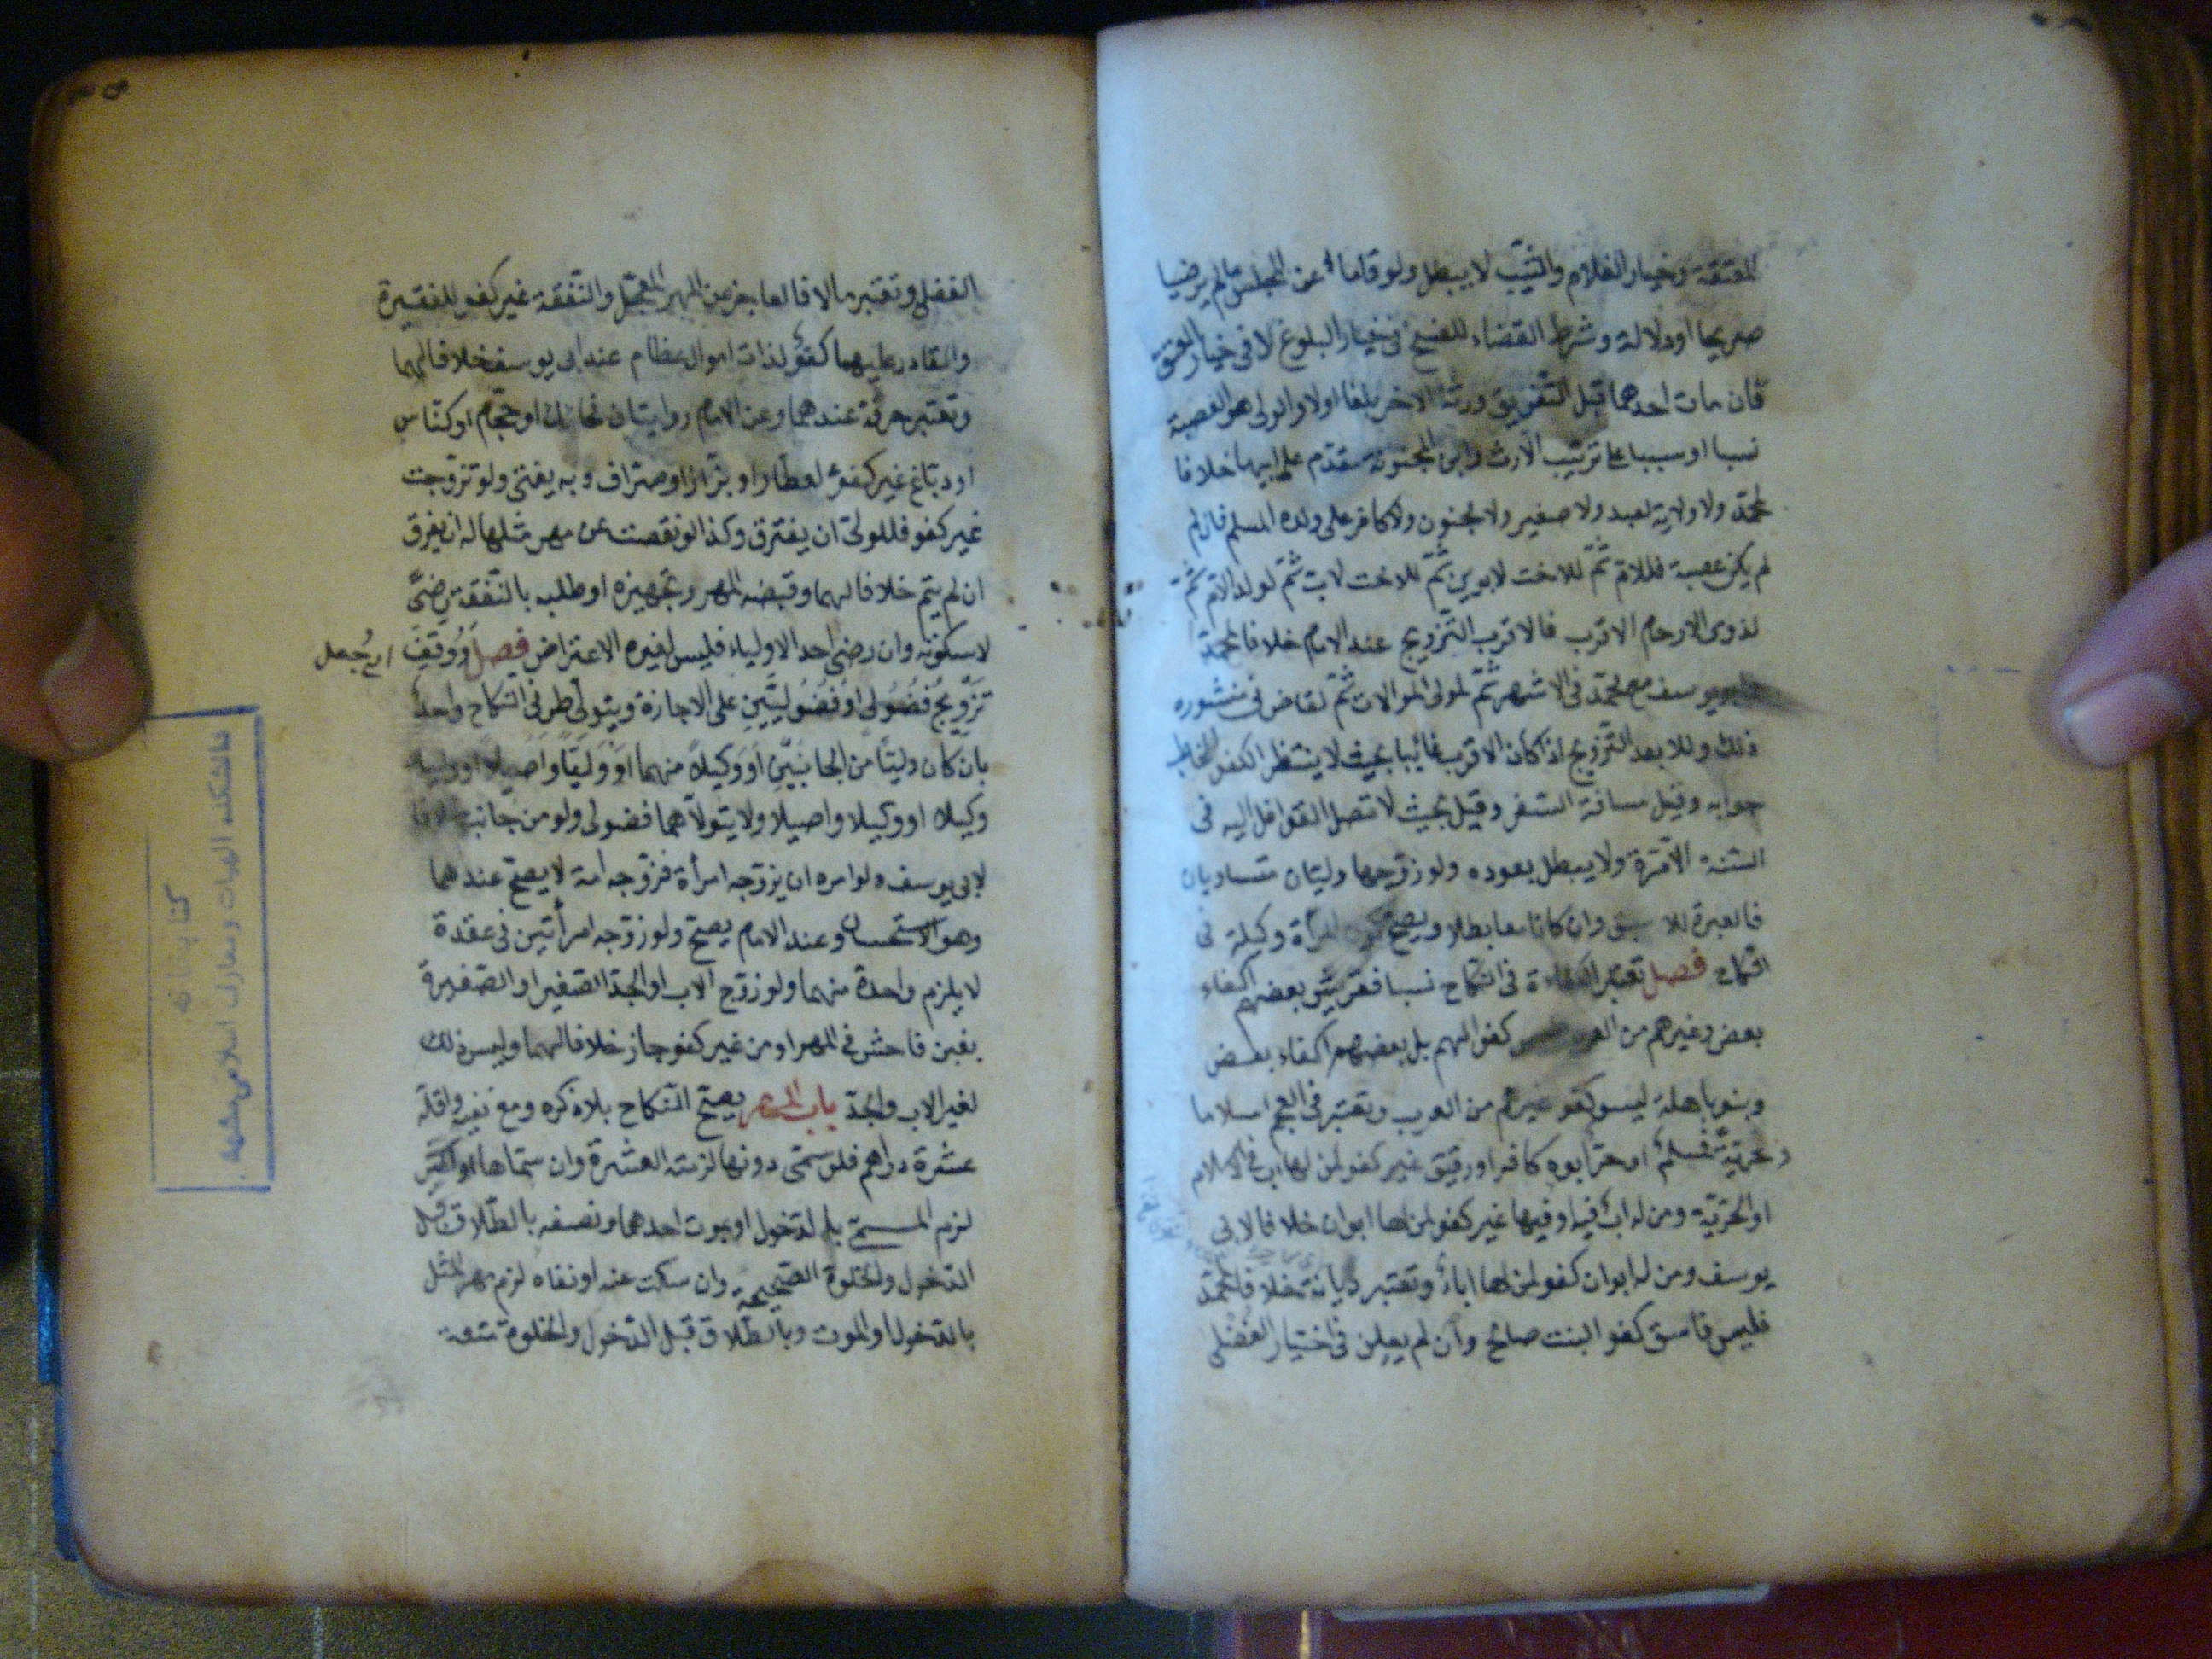 المعتقة وخيار الغلام والثيب لا يبطل ولو قاما عن المجلس ما لم يرضيا
صريحا او دلالة وشرط القضاء للفسخ في خيار البلوغ لا في خيار العتق
فان مات احدهما قبل التفريق ورثه الاخر بلغا اولا والولى هو العصبة
نسبا او سببا على ترتيب الارث وابن المجنونة مقدم على ابيها خلافا
لمحمد ولا ولاية لعبد ولا صغير ولا مجنون ولا كافر على ولده المسلم فان لم
لم يكن عصبة فللام ثم للاخت لابوين ثم للاخت لاب ثم لولد الام ثم
لذوى الارحام الاقرب فالاقرب التزويج عند الامام خلافا لمحمد
وابو يوسف مع محمد في الاشهر ثم لمولى الموالات ثم لقاض في منشوره
ذلك وللابعد التزويج اذا كان الاقرب غائبا بحيث لا ينتظر الكفو الخاطب
جوابه وقيل مسافة السفر وقيل بحيث لا تصل القوافل اليه في
السنة الا مرة ولا يبطل بعوده ولو زوجها وليان متساويان
فالعبرة للاسبق وان كانا معا بطلا ويصح كون المرأة وكيلة في
النكاح فصل تعتبر الكفاءة في النكاح نسبا فقريش بعضهم اكفاء
بعض وغيرهم من العرب ليس كفو الهم بل بعضهم اكفاء بعض
وبنو باهلة ليسو كفو غيرهم من العرب وتعتبر في العجم اسلاما
وحرية فمسلم او حر ابوه كافر او رقيق غير كفو لمن لها اب في الاسلام
او الحرية ومن له اب فيه او فيها غير كفو لمن لها ابوان خلافا لابى
يوسف ومن له ابوان كفو لمن لها اباء وتعتبر ديانة خلافا لمحمد
فليس فاسق كفو البنت صالح وان لم يعلن في اختيار الفضلى
الفضلى وتعتبر مالا فالعاجز عن المهر المعجل والنفقة غير كفو للفقيرة
والقادر عليهما كفؤ لذات اموال عظام عند ابى يوسف خلافا لهما
وتعتبر حرفة عندهما وعن الامام روايتان فحائك او حجام او كناس
او دباغ غير كفؤ لعطار او بزاز او صراف وبه يفتى ولو تزوجت
غير كفو فللولى ان يفرق وكذا لو نقصت عن مهر مثلها له ان يفرق
ان لم يتم خلافا لهما وقبضه المهر وتجهيزه او طلبه بالنفقة رضى
لا سكوته وان رضى احد الاولياء فليس لغيره الاعتراض فصل ووقف
اى جعل
تزويج فضولى او فضوليين على الاجازة ويتولى طرفى النكاح واحد
بان كان وليا من الجانبين او وكيلا منهما او وليا واصيلا او وليا
وكيلا او وكيلا واصيلا ولا يتولاهما فضولى ولو من جانب خلافا
لابى يوسف ولو امره ان يزوجه امرأة فزوجه امة لا يصح عندهما
وهو الاستحسان وعند الامام يصح ولو زوجه امرأتين في عقدة
لا يلزم واحدة منهما ولو زوج الاب او الجد الصغير او الصغيرة
بغبن فاحش في المهر او من غير كفو جاز خلافا لهما وليس ذلك
لغير الاب والجد باب المهر يصح النكاح بلا ذكره ومع نفيه واقله
عشرة دراهم فلو سمى دونها لزمته العشرة وان سماها او اكثر
لزم المسمى بالدخول او بموت احدهما ونصفه بالطلاق قبل
الدخول والخلوة الصحيحة وان سكت عنه او نفاه لزم مهر المثل
بالدخول او الموت وبالطلاق قبل الدخول والخلوة متعة
كتابخانه
دانشكده الهيات ومعارف اسلامى مشهد